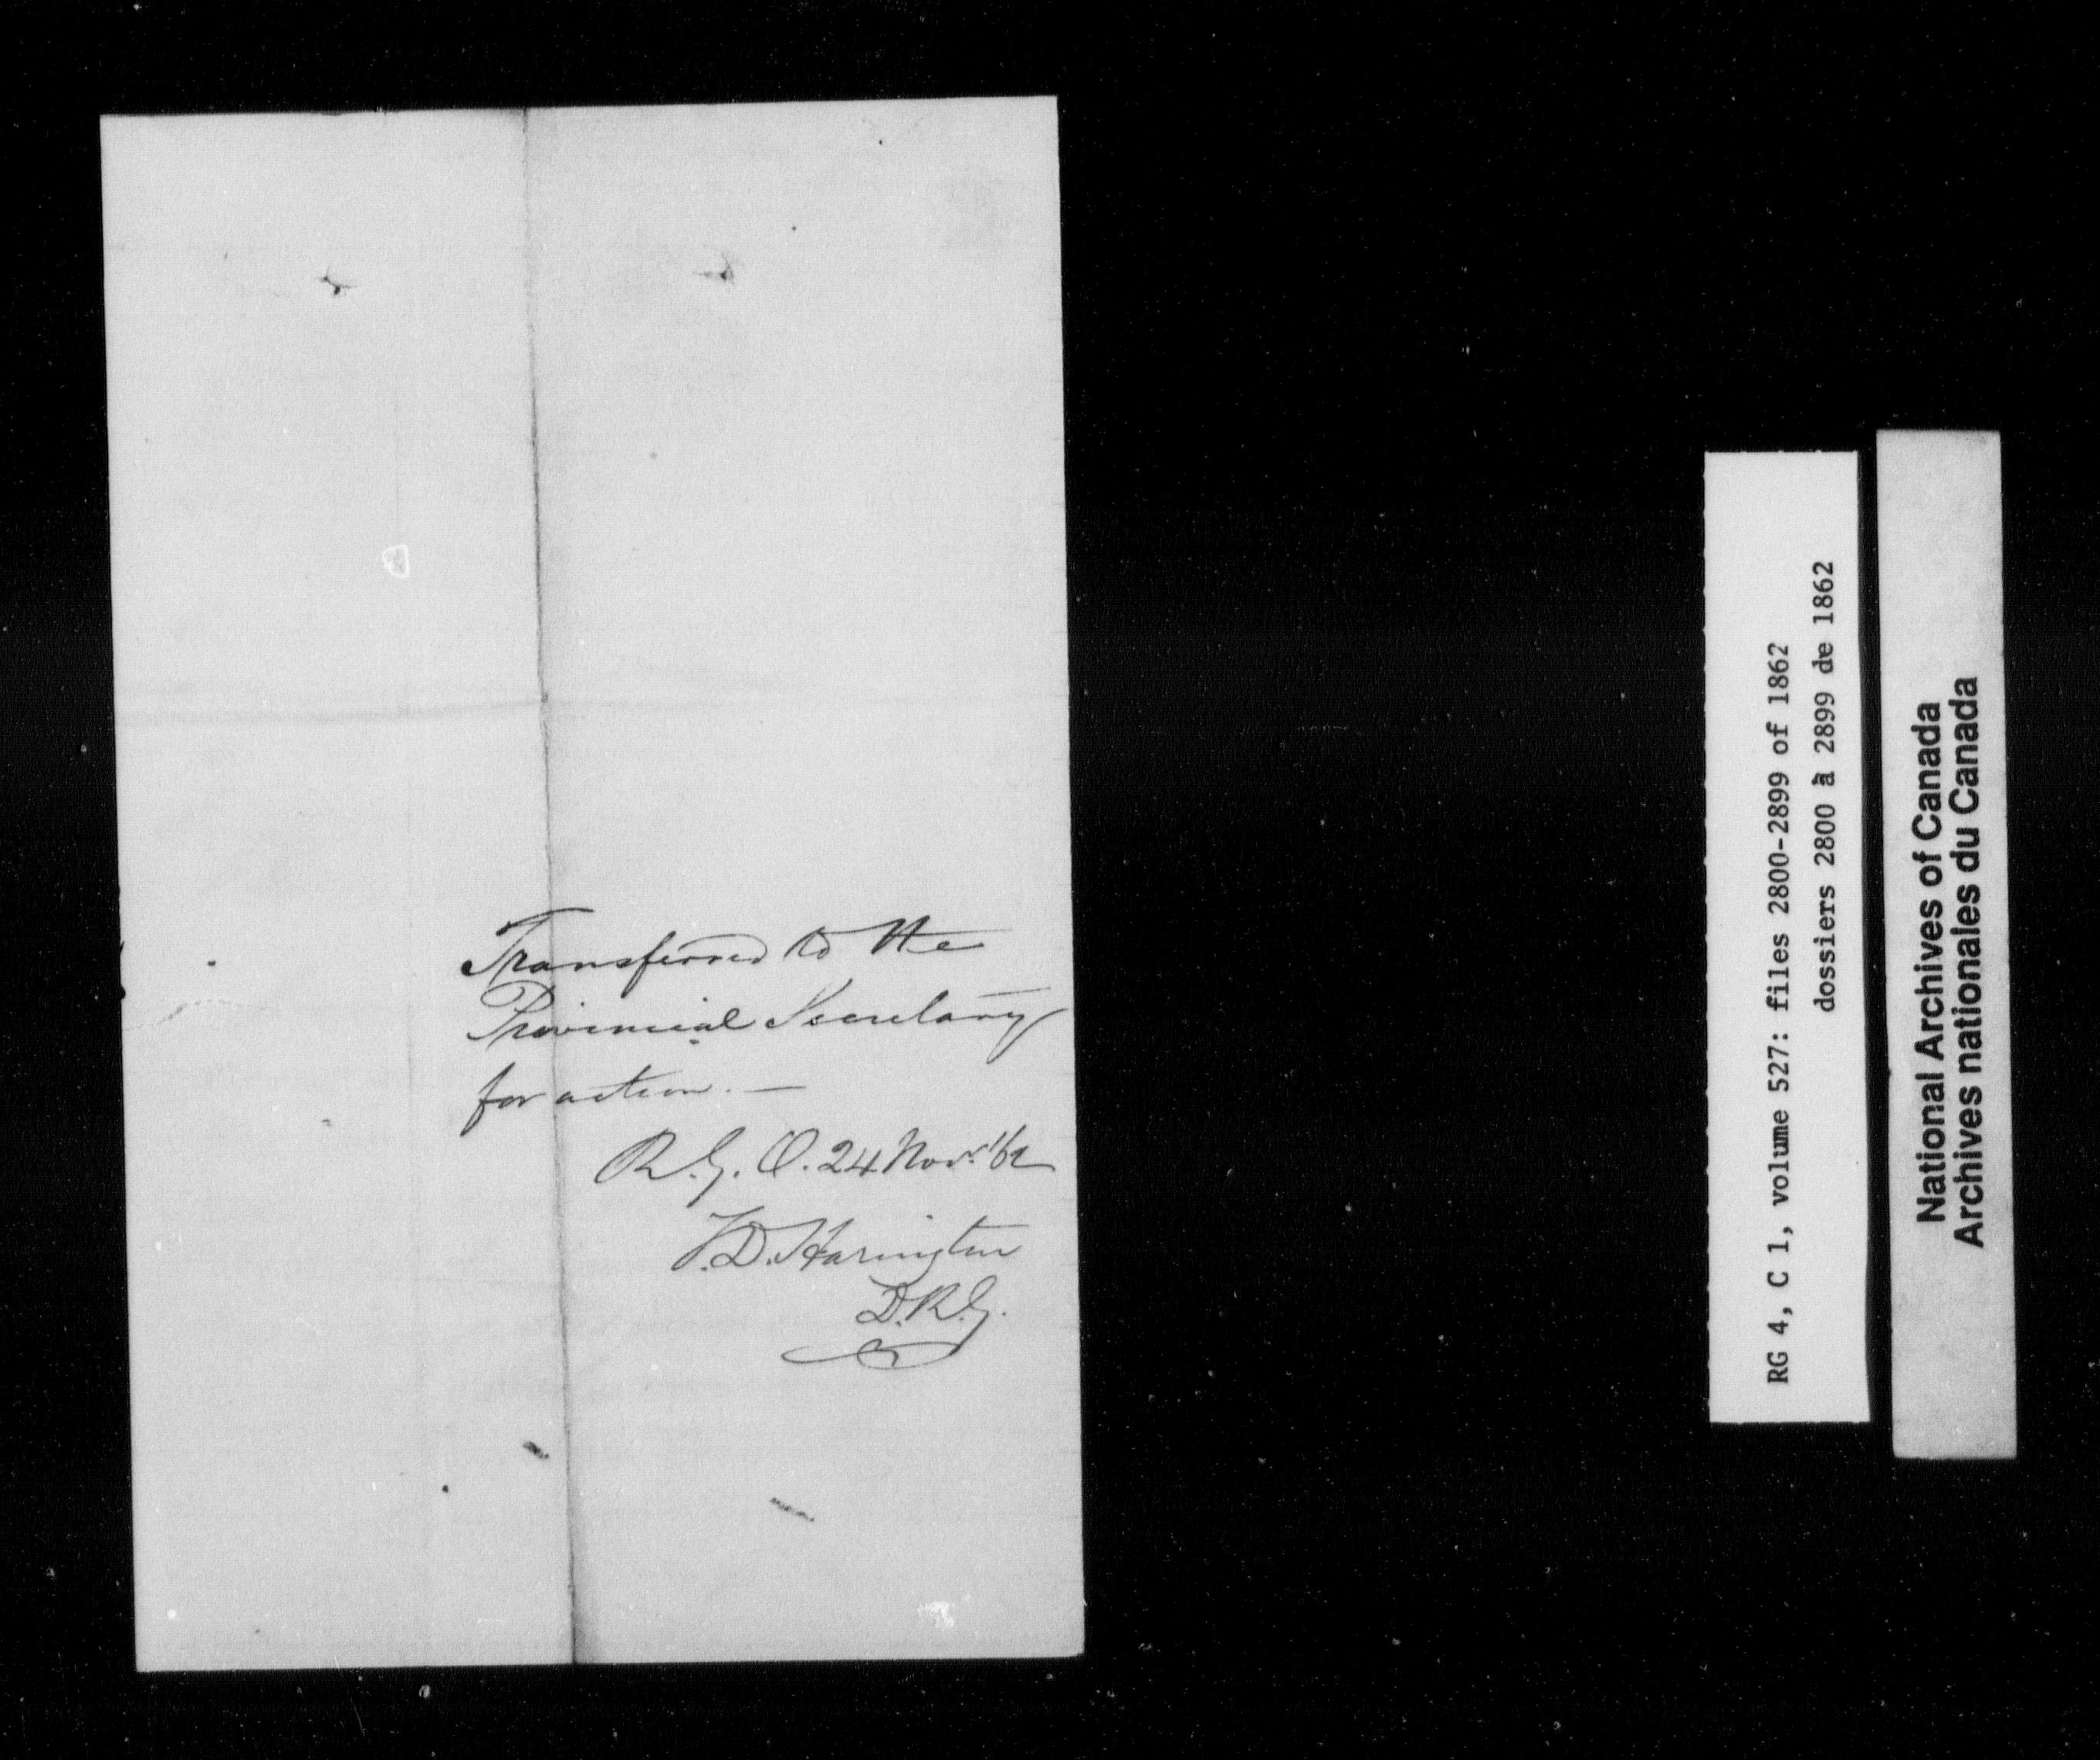 Transferred to the
Provincial Secretary
for action. —
R. G. O. 24 Novr. '62
T. D. Harington
D. R. G.
RG 4, C 1, volume 527: files 2800-2899 of 1862
dossiers 2800 à 2899 de 1862
National Archives of Canada
Archives nationales du Canada